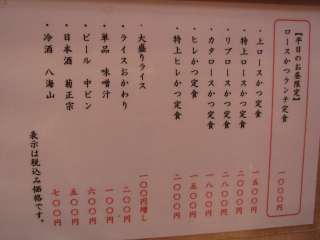 【平日のお昼限定】
ロースかつランチ定食 一〇〇〇円
・上ロースかつ定食 一五〇〇円
・特上ロースかつ定食 二〇〇〇円
・リブロースかつ定食 二八〇〇円
・カタロースかつ定食 一八〇〇円
・ヒレかつ定食 一五〇〇円
・特上ヒレかつ定食 二〇〇〇円
・大盛りライス 一〇〇円増し
・ライスおかわり 二〇〇円
・単品 味噌汁 一〇〇円
・ビール 中ビン 六〇〇円
・日本酒 菊正宗 五〇〇円
・冷酒 八海山 七〇〇円
表示は税込み価格です。